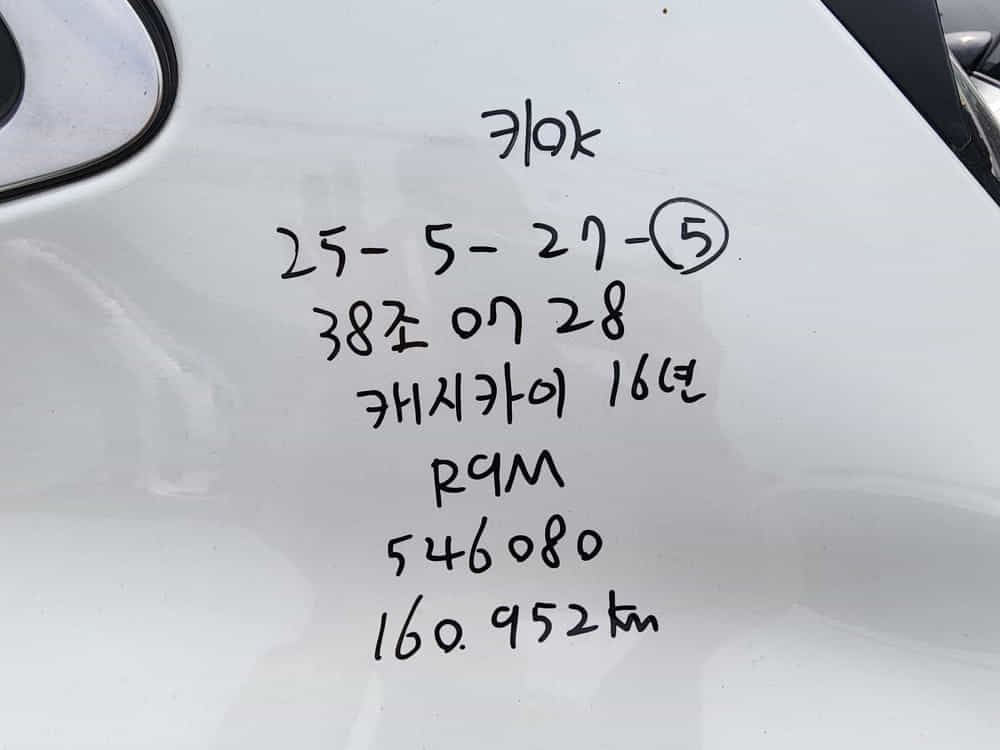 키OK
25-5-27-⑤
38조0728
캐시카이 16년
R9M
546080
160.952km